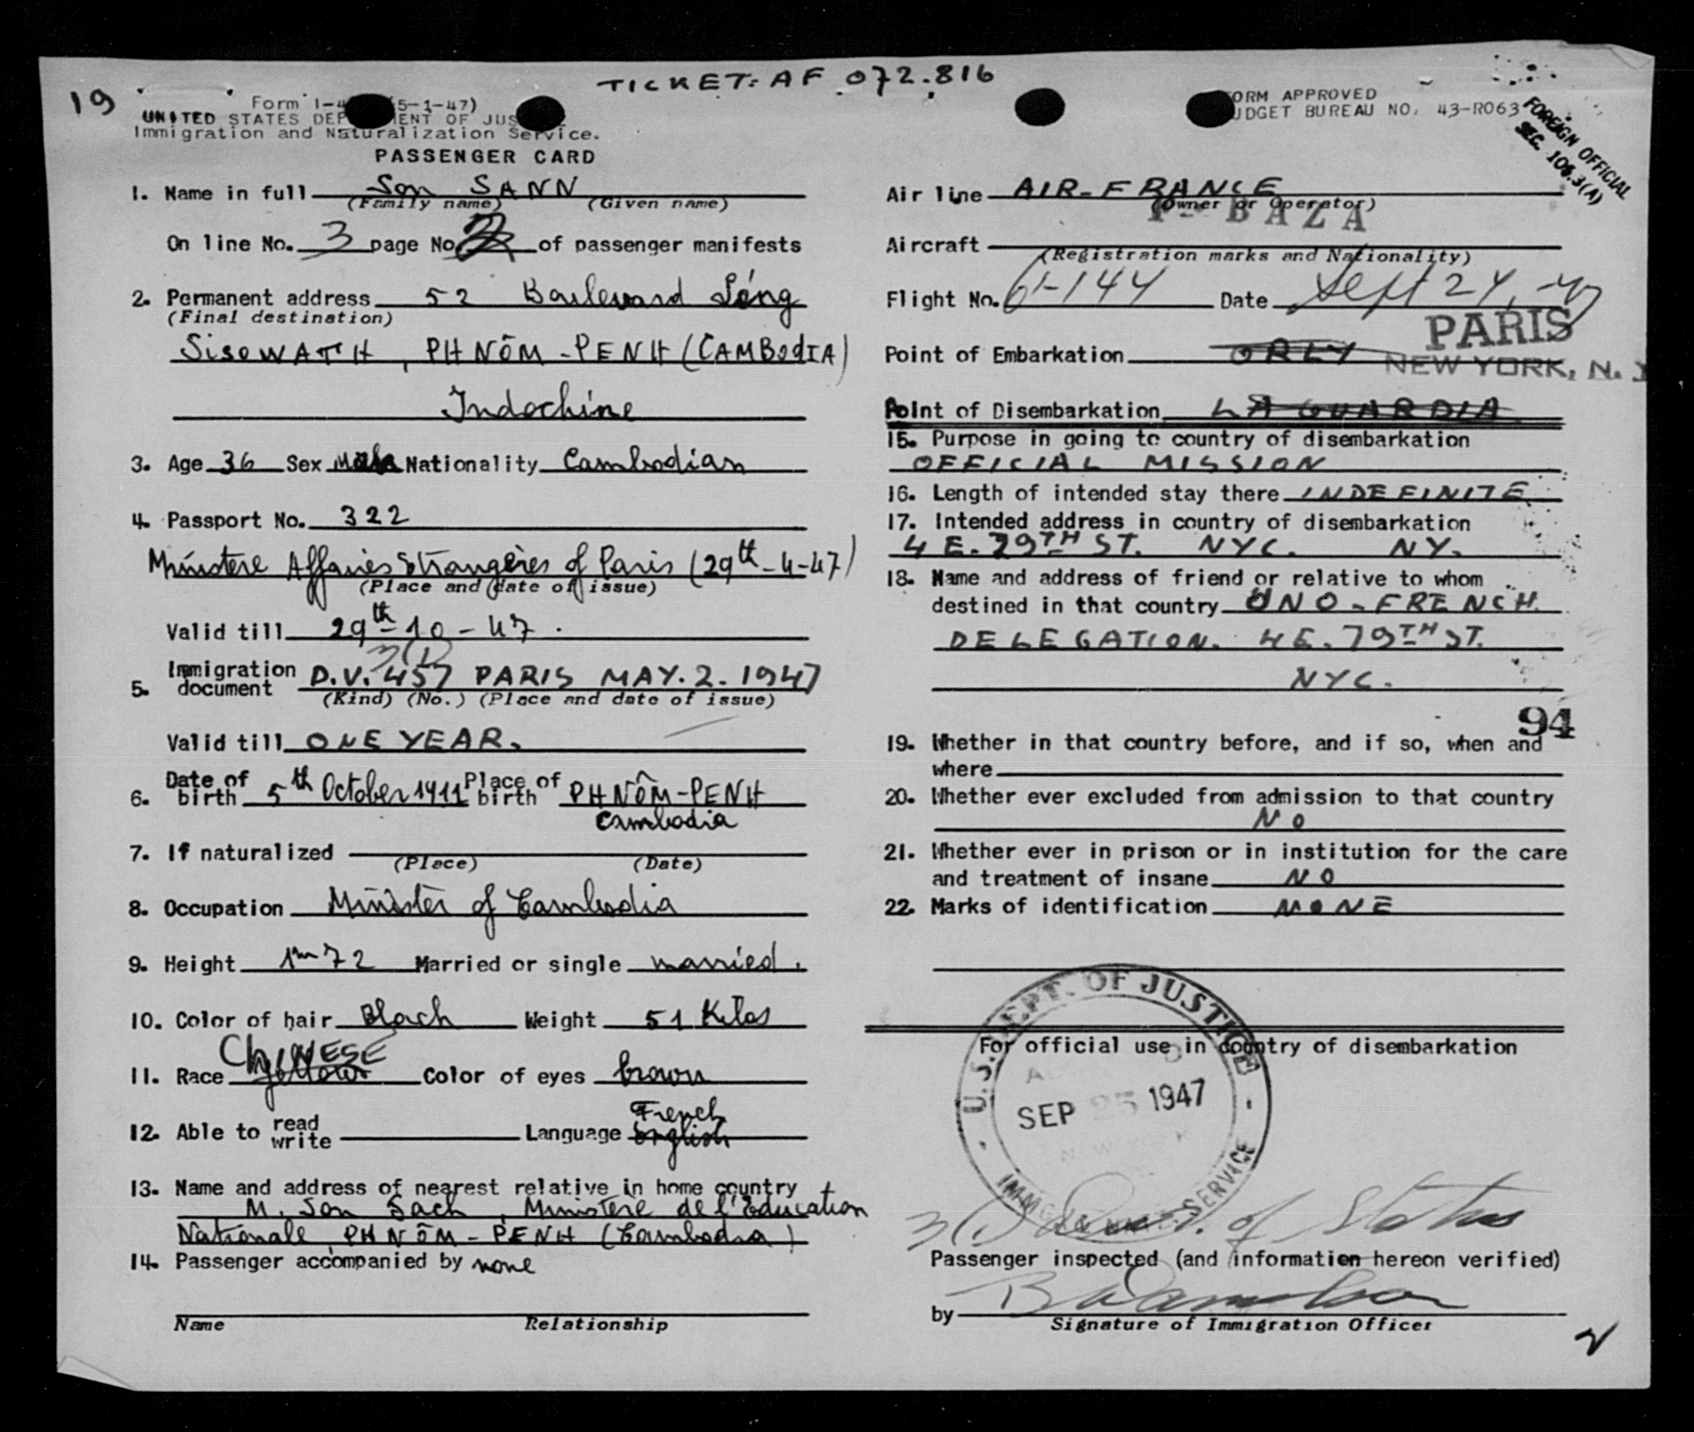 TICKET: AF 072.816
19
Form I-4 (5-1-47)
UNITED STATES DEP MENT OF JUS
Immigration and Naturalization Service.
PASSENGER CARD
FORM APPROVED
BUDGET BUREAU NO. 43-R063
FOREIGN OFFICIAL
SEC. 106.3(A)
1. Name in full Son SANN
(Family name) (Given name)
On line No. 3 page No. of passenger manifests
2. Permanent address 52 Boulevard
(Final destination)
SisoWATH, PHNÔM-PENH (CAMBodIA)
Indochine
3. Age 36 Sex Male Nationality Cambodian
4. Passport No. 322
Ministère Affaires Etrangères of Paris (29th-4-47)
(Place and date of issue)
Valid till 29th-10-47.
3(1)
5. Immigration document D.V. 457 PARIS MAY.2.1947
(Kind) (No.) (Place and date of issue)
Valid till ONE YEAR.
6. Date of birth 5th October 1911 Place of birth PHNÔM-PENH
Cambodia
7. If naturalized
(Place) (Date)
8. Occupation Minister of Cambodia
9. Height 1m72 Married or single married.
10. Color of hair Black Weight 51 Kilos
CHINESE
11. Race yellow Color of eyes brown
French
12. Able to read write Language English
13. Name and address of nearest relative in home country
M. Son Sach, Ministère de l'Education
Nationale PHNÔM-PENH (Cambodia)
14. Passenger accompanied by none
Name Relationship
Air line AIR-FRANCE
(Owner or Operator)
F-BAZA
Aircraft
(Registration marks and Nationality)
Flight No. 61-144 Date Sept 24,-47
PARIS
Point of Embarkation ORLY
NEW YORK, N. Y
Point of Disembarkation LA GUARDIA
15. Purpose in going to country of disembarkation
OFFICIAL MISSION
16. Length of intended stay there INDEFINITE
17. Intended address in country of disembarkation
4 E. 79TH ST. NYC. NY.
18. Name and address of friend or relative to whom
destined in that country UNO-FRENCH
DELEGATION. 4E. 79TH ST.
NYC.
94
19. Whether in that country before, and if so, when and
where
20. Whether ever excluded from admission to that country
NO
21. Whether ever in prison or in institution for the care
and treatment of insane NO
22. Marks of identification NONE
For official use in country of disembarkation
U.S. DEPT. OF JUSTICE
SEP 25 1947
IMMIG. & NAT. SERVICE
3(1) of Status
Passenger inspected (and information hereon verified)
by
Signature of Immigration Officer